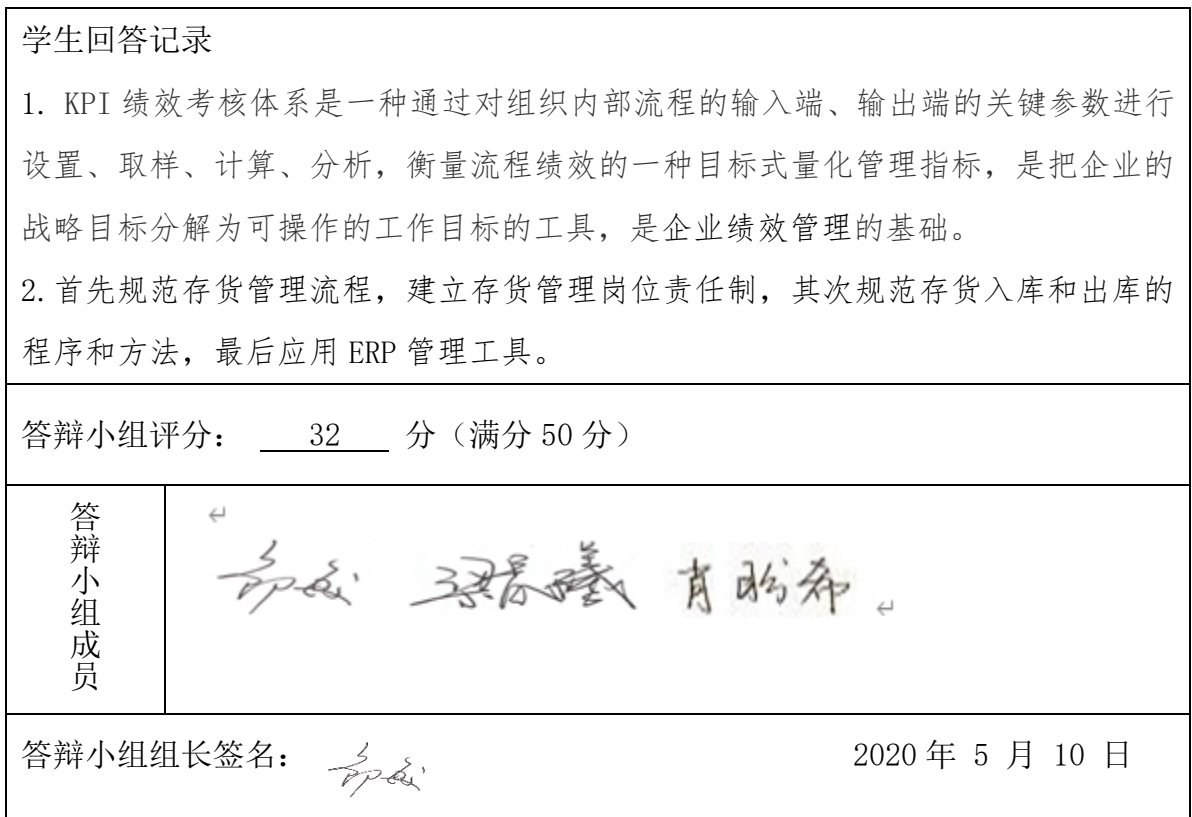 学生回答记录
1. KPI 绩效考核体系是一种通过对组织内部流程的输入端、输出端的关键参数进行
设置、取样、计算、分析，衡量流程绩效的一种目标式量化管理指标，是把企业的
战略目标分解为可操作的工作目标的工具，是企业绩效管理的基础。
2.首先规范存货管理流程，建立存货管理岗位责任制，其次规范存货入库和出库的
程序和方法，最后应用 ERP 管理工具。
答辩小组评分： 32 分（满分 50 分）
答辩小组成员
答辩小组组长签名： 2020 年 5 月 10 日